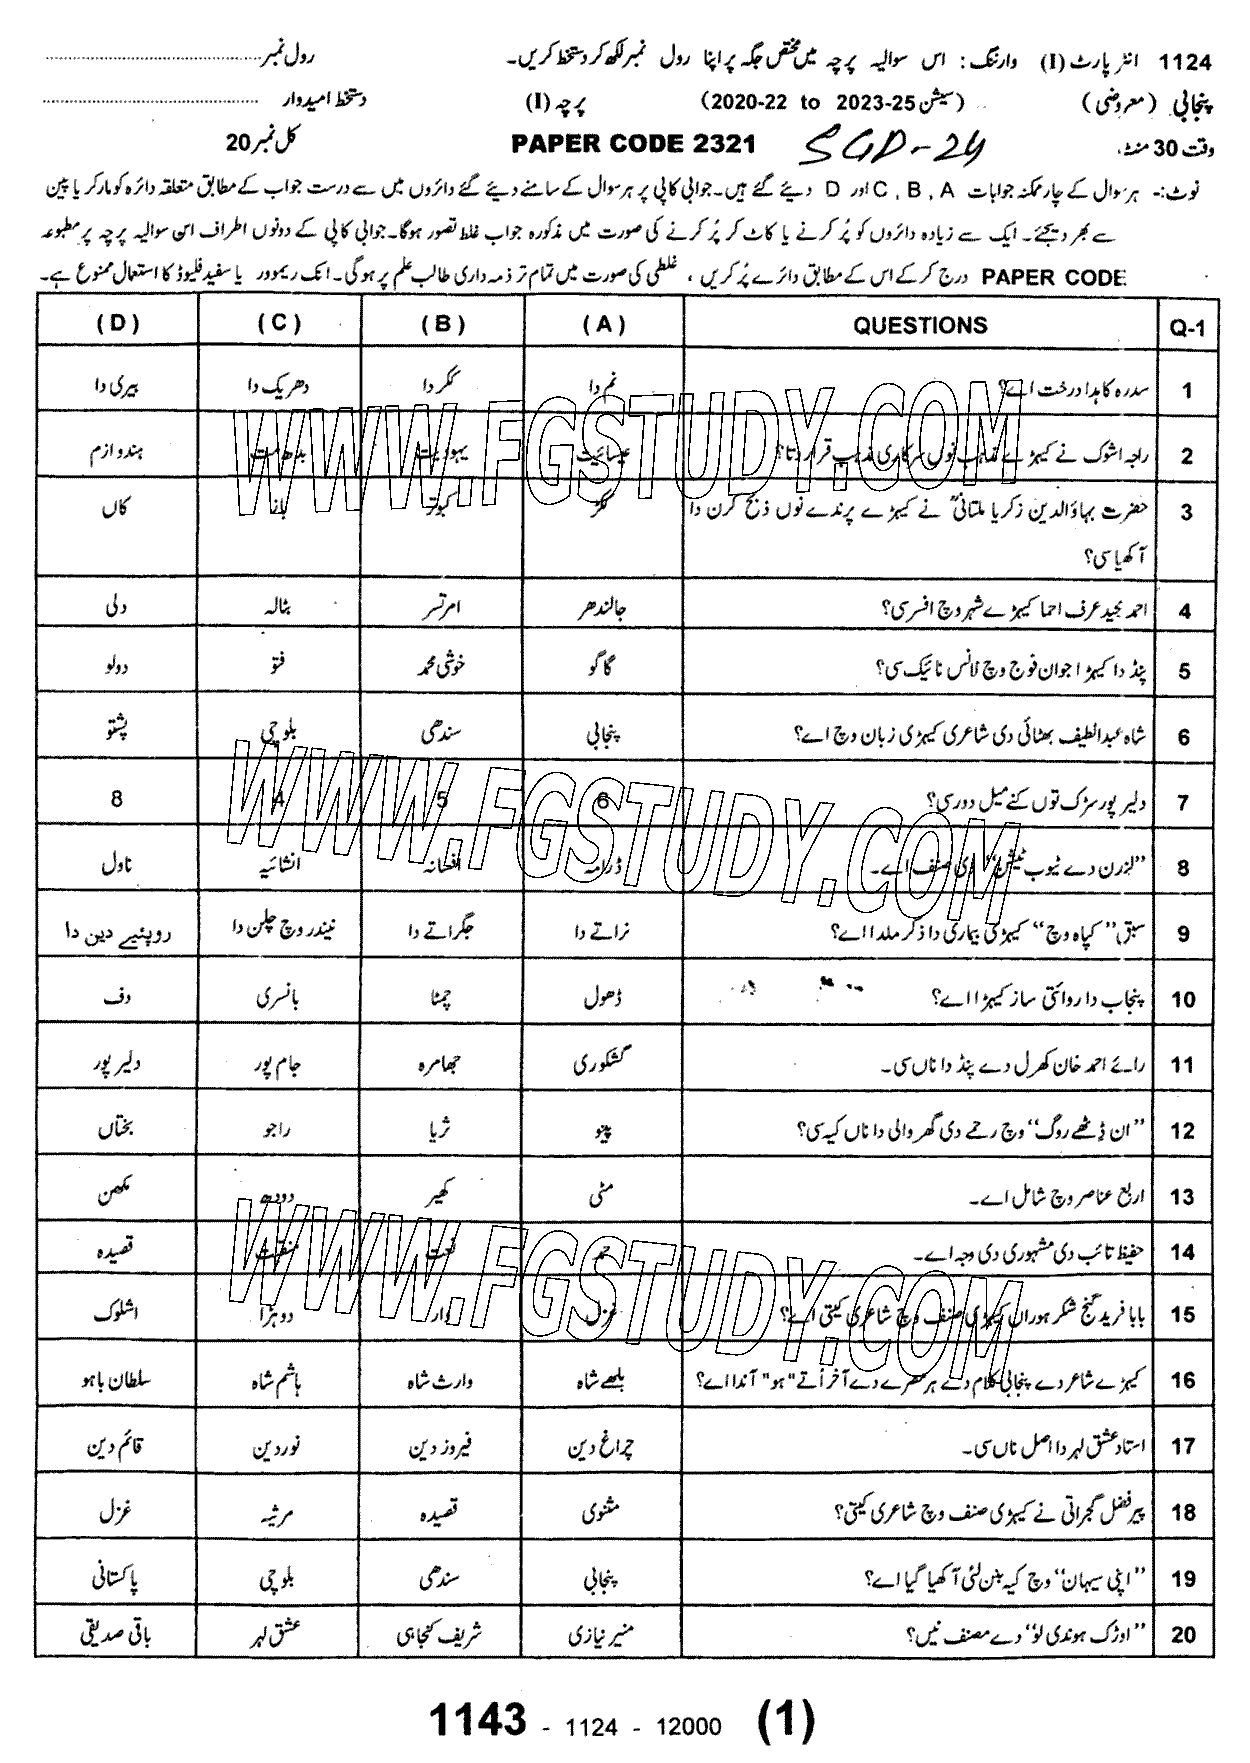 1124 انٹر پارٹ (I) وارننگ: اس سوالیہ پرچہ میں مختص جگہ پر اپنا رول نمبر لکھ کر دستخط کریں۔ رول نمبر
پنجابی (معروضی) (سیشن 2020-22 to 2023-25) پرچہ (I) دستخط امیدوار
وقت 30 منٹ SGD-24 PAPER CODE 2321 کل نمبر 20
نوٹ:- ہر سوال کے چار ممکنہ جوابات A , B , C اور D دیئے گئے ہیں۔ جوابی کاپی پر ہر سوال کے سامنے دیئے گئے دائروں میں سے درست جواب کے مطابق متعلقہ دائرہ کو مارکر یا پین
سے بھر دیجئے۔ ایک سے زیادہ دائروں کو پُر کرنے یا کاٹ کر پُر کرنے کی صورت میں مذکورہ جواب غلط تصور ہوگا۔ جوابی کاپی کے دونوں اطراف اس سوالیہ پرچہ پر مطبوعہ
PAPER CODE درج کر کے اس کے مطابق دائرے پُر کریں، غلطی کی صورت میں تمام تر ذمہ داری طالب علم پر ہوگی۔ انک ریموور یا سفید فلیوڈ کا استعمال ممنوع ہے۔
Q-1 QUESTIONS (A) (B) (C) (D)
1 سدرہ کاہدا درخت اے؟ نم دا ککر دا دھریک دا بیری دا
2 راجہ اشوک نے کیہڑے مذہب نوں سرکاری مذہب قرار دتا؟ عیسائیت یہودیت بدھ مت ہندو ازم
3 حضرت بہاؤالدین زکریا ملتانیؒ نے کیہڑے پرندے نوں ذبح کرن دا ککڑ کبوتر باز کاں
آکھیا سی؟
4 احمد مجید عرف احما کیہڑے شہر وچ افسر سی؟ جالندھر امرتسر بٹالہ دلی
5 پنڈ دا کیہڑا جوان فوج وچ لانس نائیک سی؟ گاگو خوشی محمد فتو دولو
6 شاہ عبدالطیف بھٹائی دی شاعری کیہڑی زبان وچ اے؟ پنجابی سندھی بلوچی پشتو
7 دلیر پور سڑک توں کنے میل دور سی؟ 6 5 4 8
8 "لنرن دے ٹیوب ٹیشن" دی صنف اے۔ ڈرامہ افسانہ انشائیہ ناول
9 سبق "کپاہ وچ" کیہڑی بیماری دا ذکر ملدا اے؟ نراتے دا جگراتے دا نیندر وچ چلن دا روپئیے دین دا
10 پنجاب دا روائتی ساز کیہڑا اے؟ ڈھول چمٹا بانسری دف
11 رائے احمد خان کھرل دے پنڈ دا ناں سی۔ گشکوری جھامرہ جام پور دلیر پور
12 "ان ڈٹھے روگ" وچ رحمے دی گھر والی دا ناں کیہ سی؟ پینو ثریا راجو بختاں
13 اربع عناصر وچ شامل اے۔ مٹی کھیر دودھ مکھن
14 حفیظ تائب دی مشہوری دی وجہ اے۔ حمد نعت منقبت قصیدہ
15 بابا فرید گنج شکر ہوراں کیہڑی صنف وچ شاعری کیتی اے؟ غزل وار دوہڑا اشلوک
16 کیہڑے شاعر دے پنجابی کلام دے ہر مصرے دے آخر اُتے "ہو" آندا اے؟ بلھے شاہ وارث شاہ ہاشم شاہ سلطان باہو
17 استاد عشق لہر دا اصل ناں سی۔ چراغ دین فیروز دین نور دین قائم دین
18 پیر فضل گجراتی نے کیہڑی صنف وچ شاعری کیتی؟ مثنوی قصیدہ مرثیہ غزل
19 "اپنی سیہان" وچ کیہ بنن لئی آکھیا گیا اے؟ پنجابی سندھی بلوچی پاکستانی
20 "اوڑک ہوندی لو" دے مصنف نیں؟ منیر نیازی شریف کنجاہی عشق لہر باقی صدیقی
WWW.FGSTUDY.COM
WWW.FGSTUDY.COM
WWW.FGSTUDY.COM
1143 - 1124 - 12000 (1)